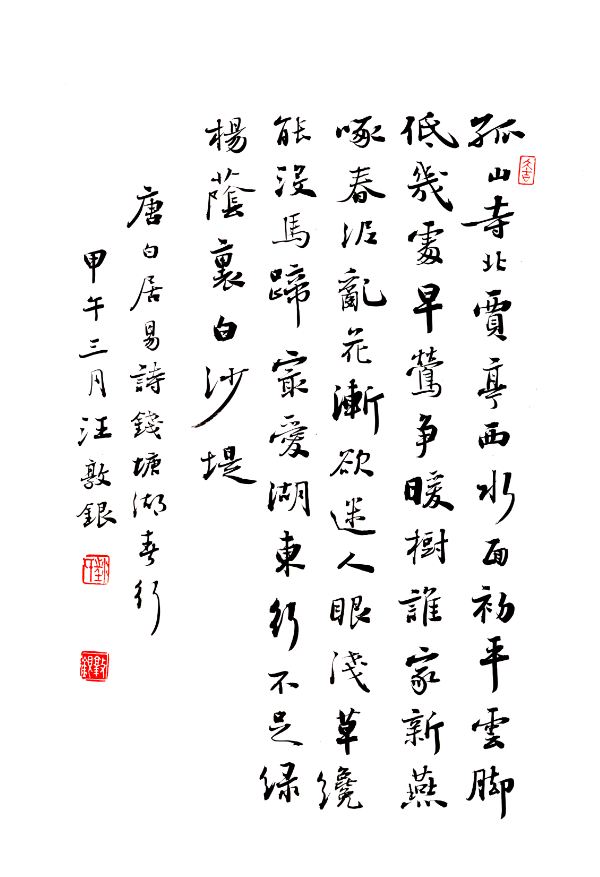 孤山寺北賈亭西水面初平雲脚
低幾處早鶯争暖樹誰家新燕
啄春泥亂花漸欲迷人眼淺草纔
能没馬蹄最愛湖東行不足绿
楊蔭裏白沙堤
唐白居易詩錢塘湖春行
甲午三月汪敦銀